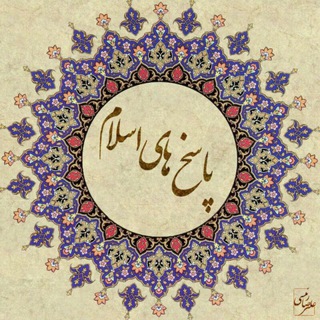 پاسخ های اسلام